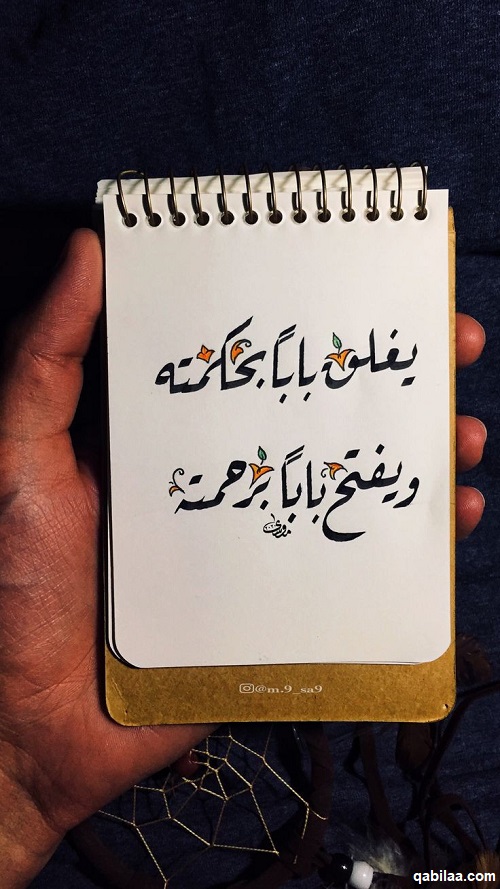 يغلق باباً بحكمته
ويفتح باباً برحمته
@m.9_sa9
qabilaa.com